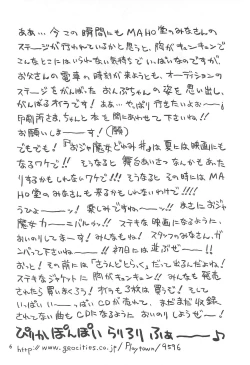 ああ… 今この瞬間にもMAHO堂のみなさんの
ステージが行われているかと思うと、胸がキュンキュンで
こんなとこにはいられない気持ちでいっぱいなのですが、
お父さんの電車の時刻が来ようとも、オーディションの
ステージをがんばった おんぷちゃんの姿を思い出し、
がんばるオイラです!ああ…やっぱり行きたいよおーー!
印刷所さま、ちゃんと本を間にあわせて下さいね!!
お願いしまーーす!(願)
でもでも!『おジャ魔女どれみ#』は夏には映画にも
なるワケで!! そうなると 舞台あいさつなんかもあった
りするかもしれないワケで!!! そうなると その時にはMA
HO堂のみなさんも来るかもしれないわけで!!!!
うひょーーッ! 楽しみですねーーッ!! まさにおジャ
魔女カーーニバルッ!! ステキな映画になるように、
おいのりしてまーす!みんなもね!スタッフのみなさん、ガ
ンバって下さいねーー!! 初日には並ぶぜーー!!
おっと!その前には「さうんどとらっく」だって出るんだよね!
ステキなジャケットに 胸がキュンキューン!! みんなも 発売
されたら買いまくろう! オイラも3枚は買うぜ! そして
いっぱいいーーっぱいCDが売れて、まだまだ収録
されてない曲もCDになるように おいのりしようぜー!
ぴりかぽっぽい らりろり ふぁーー〜♪
http://www.geocities.co.jp/Playtown/9596